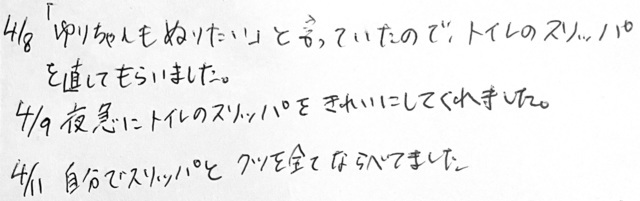 4/8 「ゆりちゃんもぬりたい」と言っていたので、トイレのスリッパ
を直してもらいました。
4/9 夜急にトイレのスリッパをきれいにしてくれました。
4/11 自分でスリッパとクツを全てならべてました